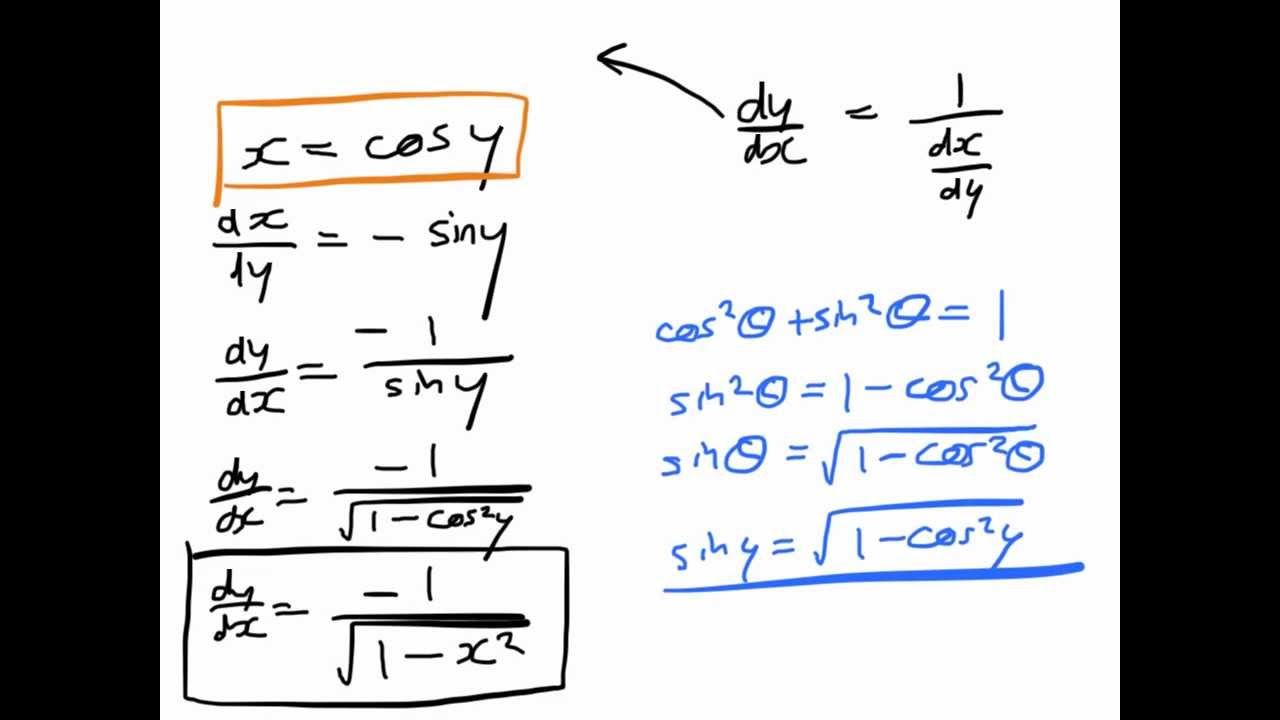 x = cos y
dx/dy = - sin y
dy/dx = -1/sin y
dy/dx = -1/√(1-cos²y)
dy/dx = -1/√(1-x²)
dy/dx = 1/(dx/dy)
cos²θ + sin²θ = 1
sin²θ = 1 - cos²θ
sinθ = √(1-cos²θ)
sin y = √(1-cos²y)